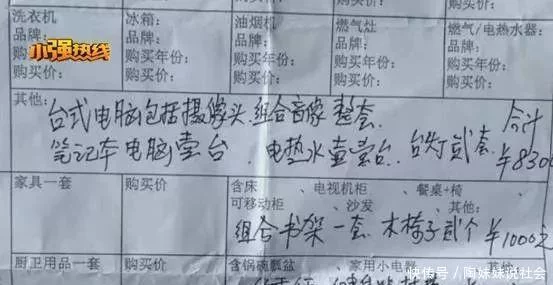 洗衣机 冰箱： 油烟机 燃气灶 燃气/电热水器：
品牌： 品牌： 品牌： 品牌： 品牌：
小强热线
购买年份： 购买年份： 购买年份： 购买年份：
购买价： 购买价： 购买价： 购买价： 购买价：
其他：
台式电脑包括摄像头.组合音像 整套. 合计
笔记本电脑壹台、电热水壶壹台、台灯贰套 ￥830
家具一套 购买价 含床 、电视机柜 、餐桌+椅
可移动柜 、沙发 、其他：
组合书架一套 木椅子贰个 ￥1000元
厨卫用品一套 购买价 含锅碗瓢盆 、家用小电器 、其他
快传号 / 陶妹妹说社会